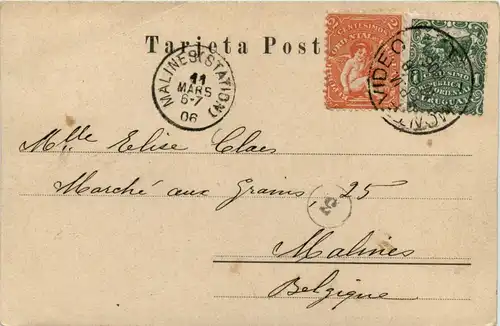 Tarjeta Post
MALINES (STATION)
11
MARS
6-7
06
2 CENTESIMOS 2
ORIENTAL
MONTEVIDEO
1 CENTESIMO 1
URUGUAY
Mlle Elise Claes
Marché aux Grains, 25
Malines
Belgique